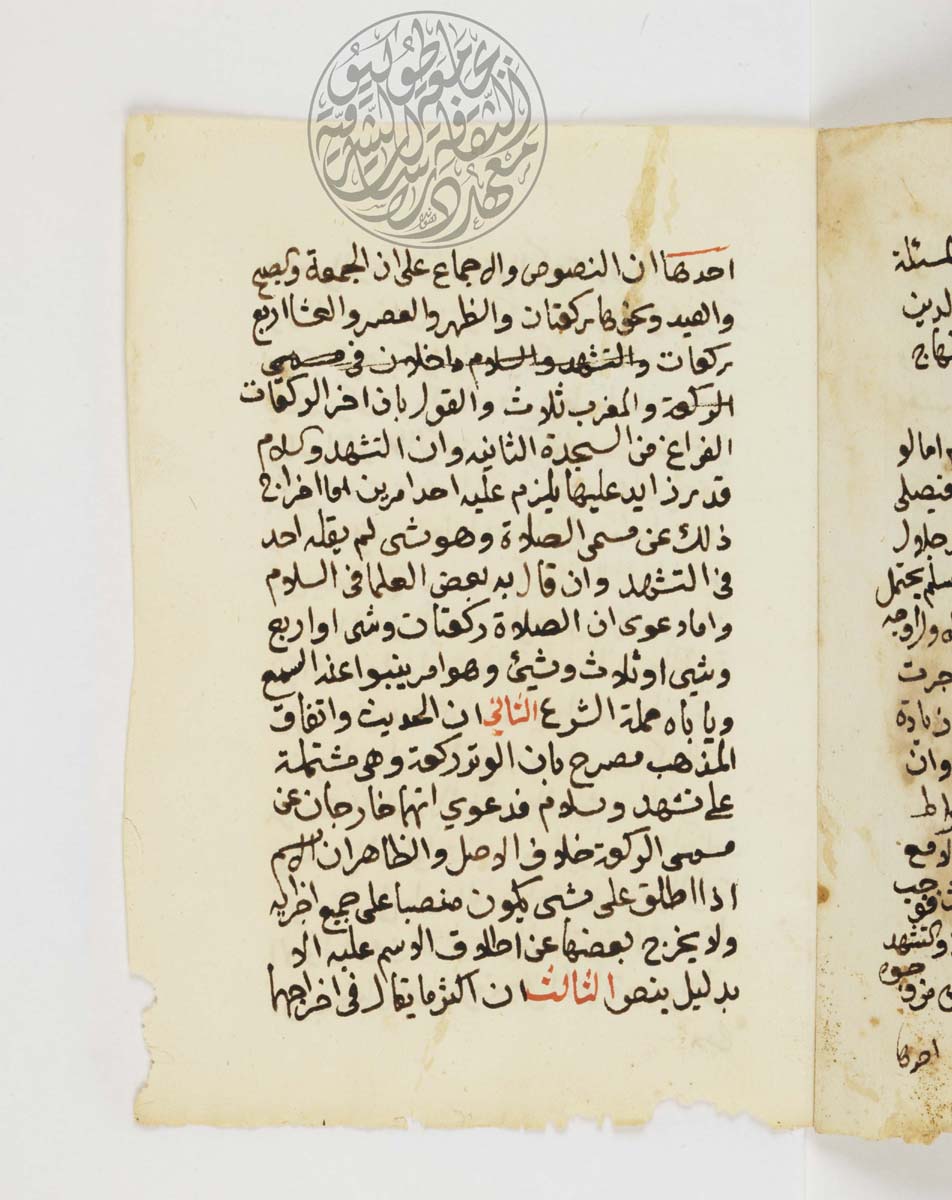 احدها ان النصوص والاجماع على ان الجمعة والصبح
والعيد ونحوها ركعتان والظهر والعصر والعشا اربع
ركعات والتشهد والسلام داخلان في مسمى
الركعة والمغرب ثلاث والقول بان اخر الركعات
الفراغ من السجدة الثانيه وان التشهد وسلام
قدر زايد عليها يلزم عليه احد امرين اما اخراج
ذلك عن مسمى الصلاة وهو شى لم يقله احد
في التشهد وان قال به بعض العلما في السلام
واما دعوى ان الصلاة ركعتات وشى او اربع
وشيى او ثلاث وشيئ وهو امر ينبوا عنه السمع
وياباه حملة الشرع الثاني ان الحديث واتفاق
المذهب مصرح بان الوتر ركعة وهى مشتملة
على تشهد وسلام فدعوي انهما خارجان عن
مسمى الركعة خلاف الاصل والظاهر ان الاسم
اذا اطلق على شى يكون منصبا على جميع اجزايه
ولا يخرج بعضها عن اطلاق الاسم عليه الا
بدليل ينص الثالث ان اكثر ما يقال في اخراجهما
لمسئلة
الدين
نهاج
اما لو
فيصلى
جلال
سلم يحتمل
جرت
زيادة
وان
والتشهد
احدها
جامعة طوكيو
معهد دراسات الثقافة الشرقية